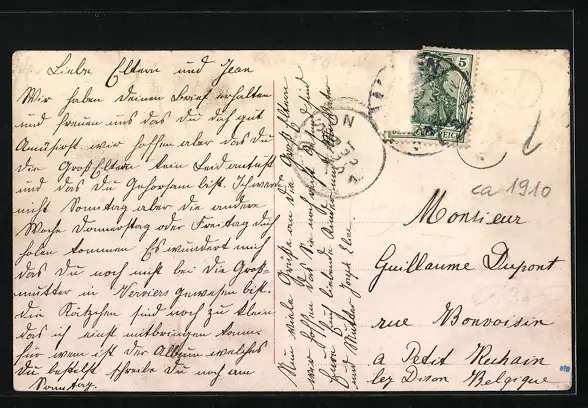 Liebe Eltern und Jean
Wir haben deinen Brief erhalten
und freuen uns das du dich gut
Amüsirst. wir hoffen aber das du
der Groß Eltern kein Leid antust
und das Du Gehorsam bist. Ich werde
nicht Sonntag aber die andere
Woche Donnerstag oder Freitag dich
holen kommen Es wundert mich
das Du noch nist bei die Groß-
mutter in Verviers gewesen bist.
die Kätzchen sind noch zu klein
das ich einst mitbringen komme
für wem ist der Album welches
Du bestellst schreibe Du noch am
Sonntag.
Nun viele Grüße an die Groß Eltern
wir hoffen das Sie noch recht
Eure Euch liebende
und Mutter
5
ca 1910
Monsieur
Guillaume Dupont
rue Bonvoisin
a Petit Rechain
lez Dison Belgique